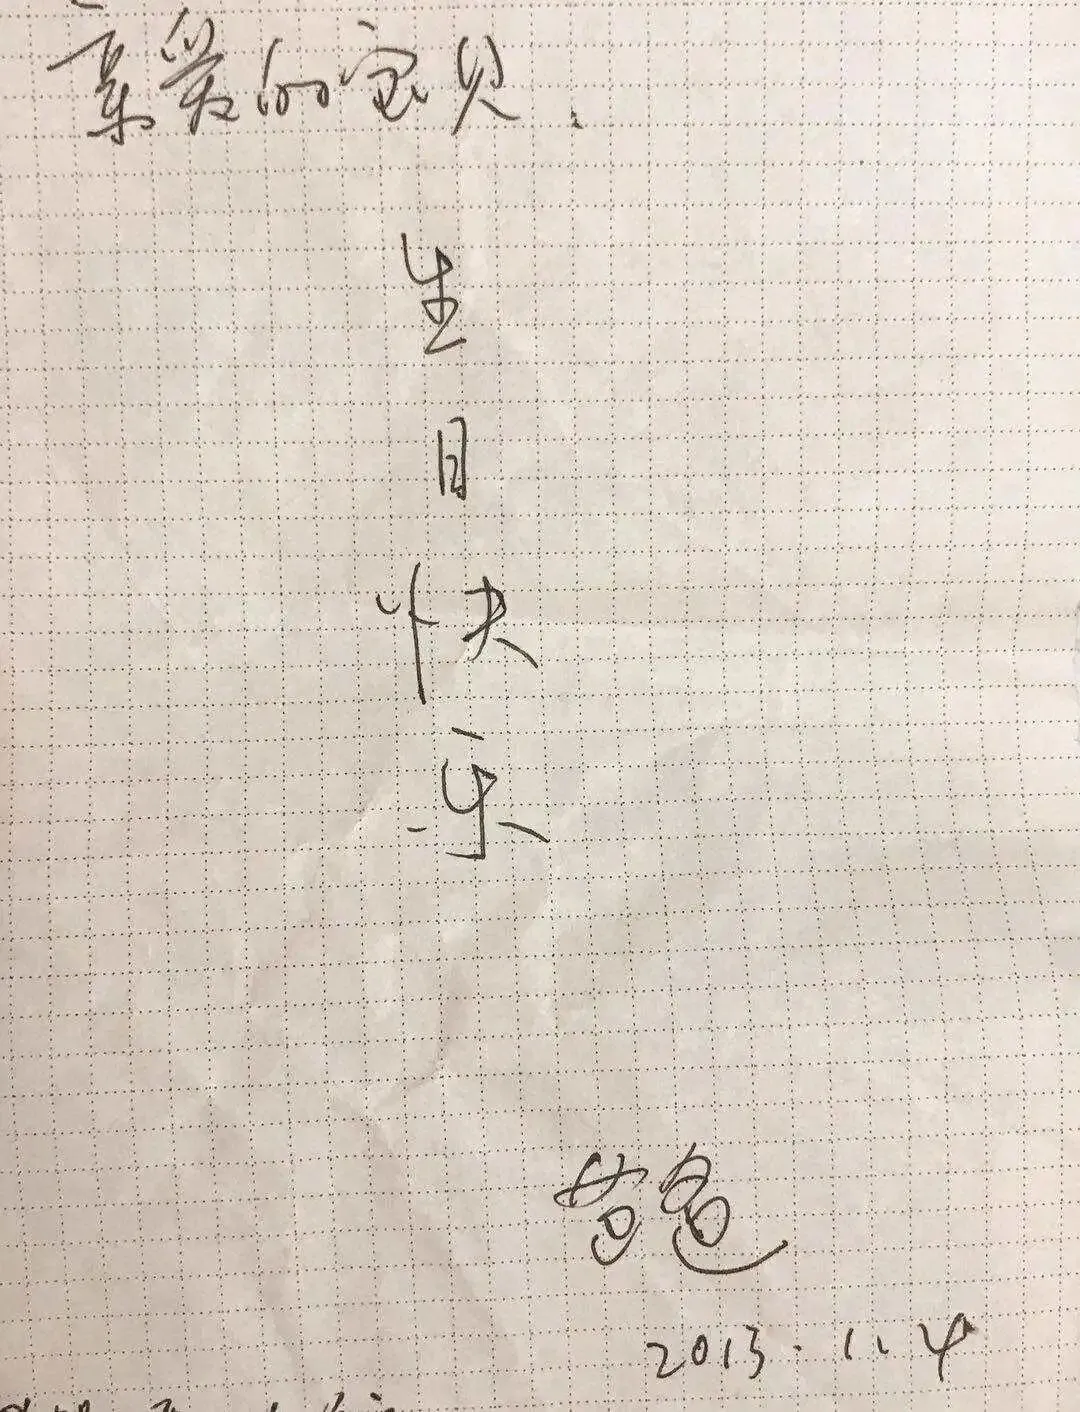 亲爱的宝贝.
生
日
快
乐
爸爸
2013.11.4